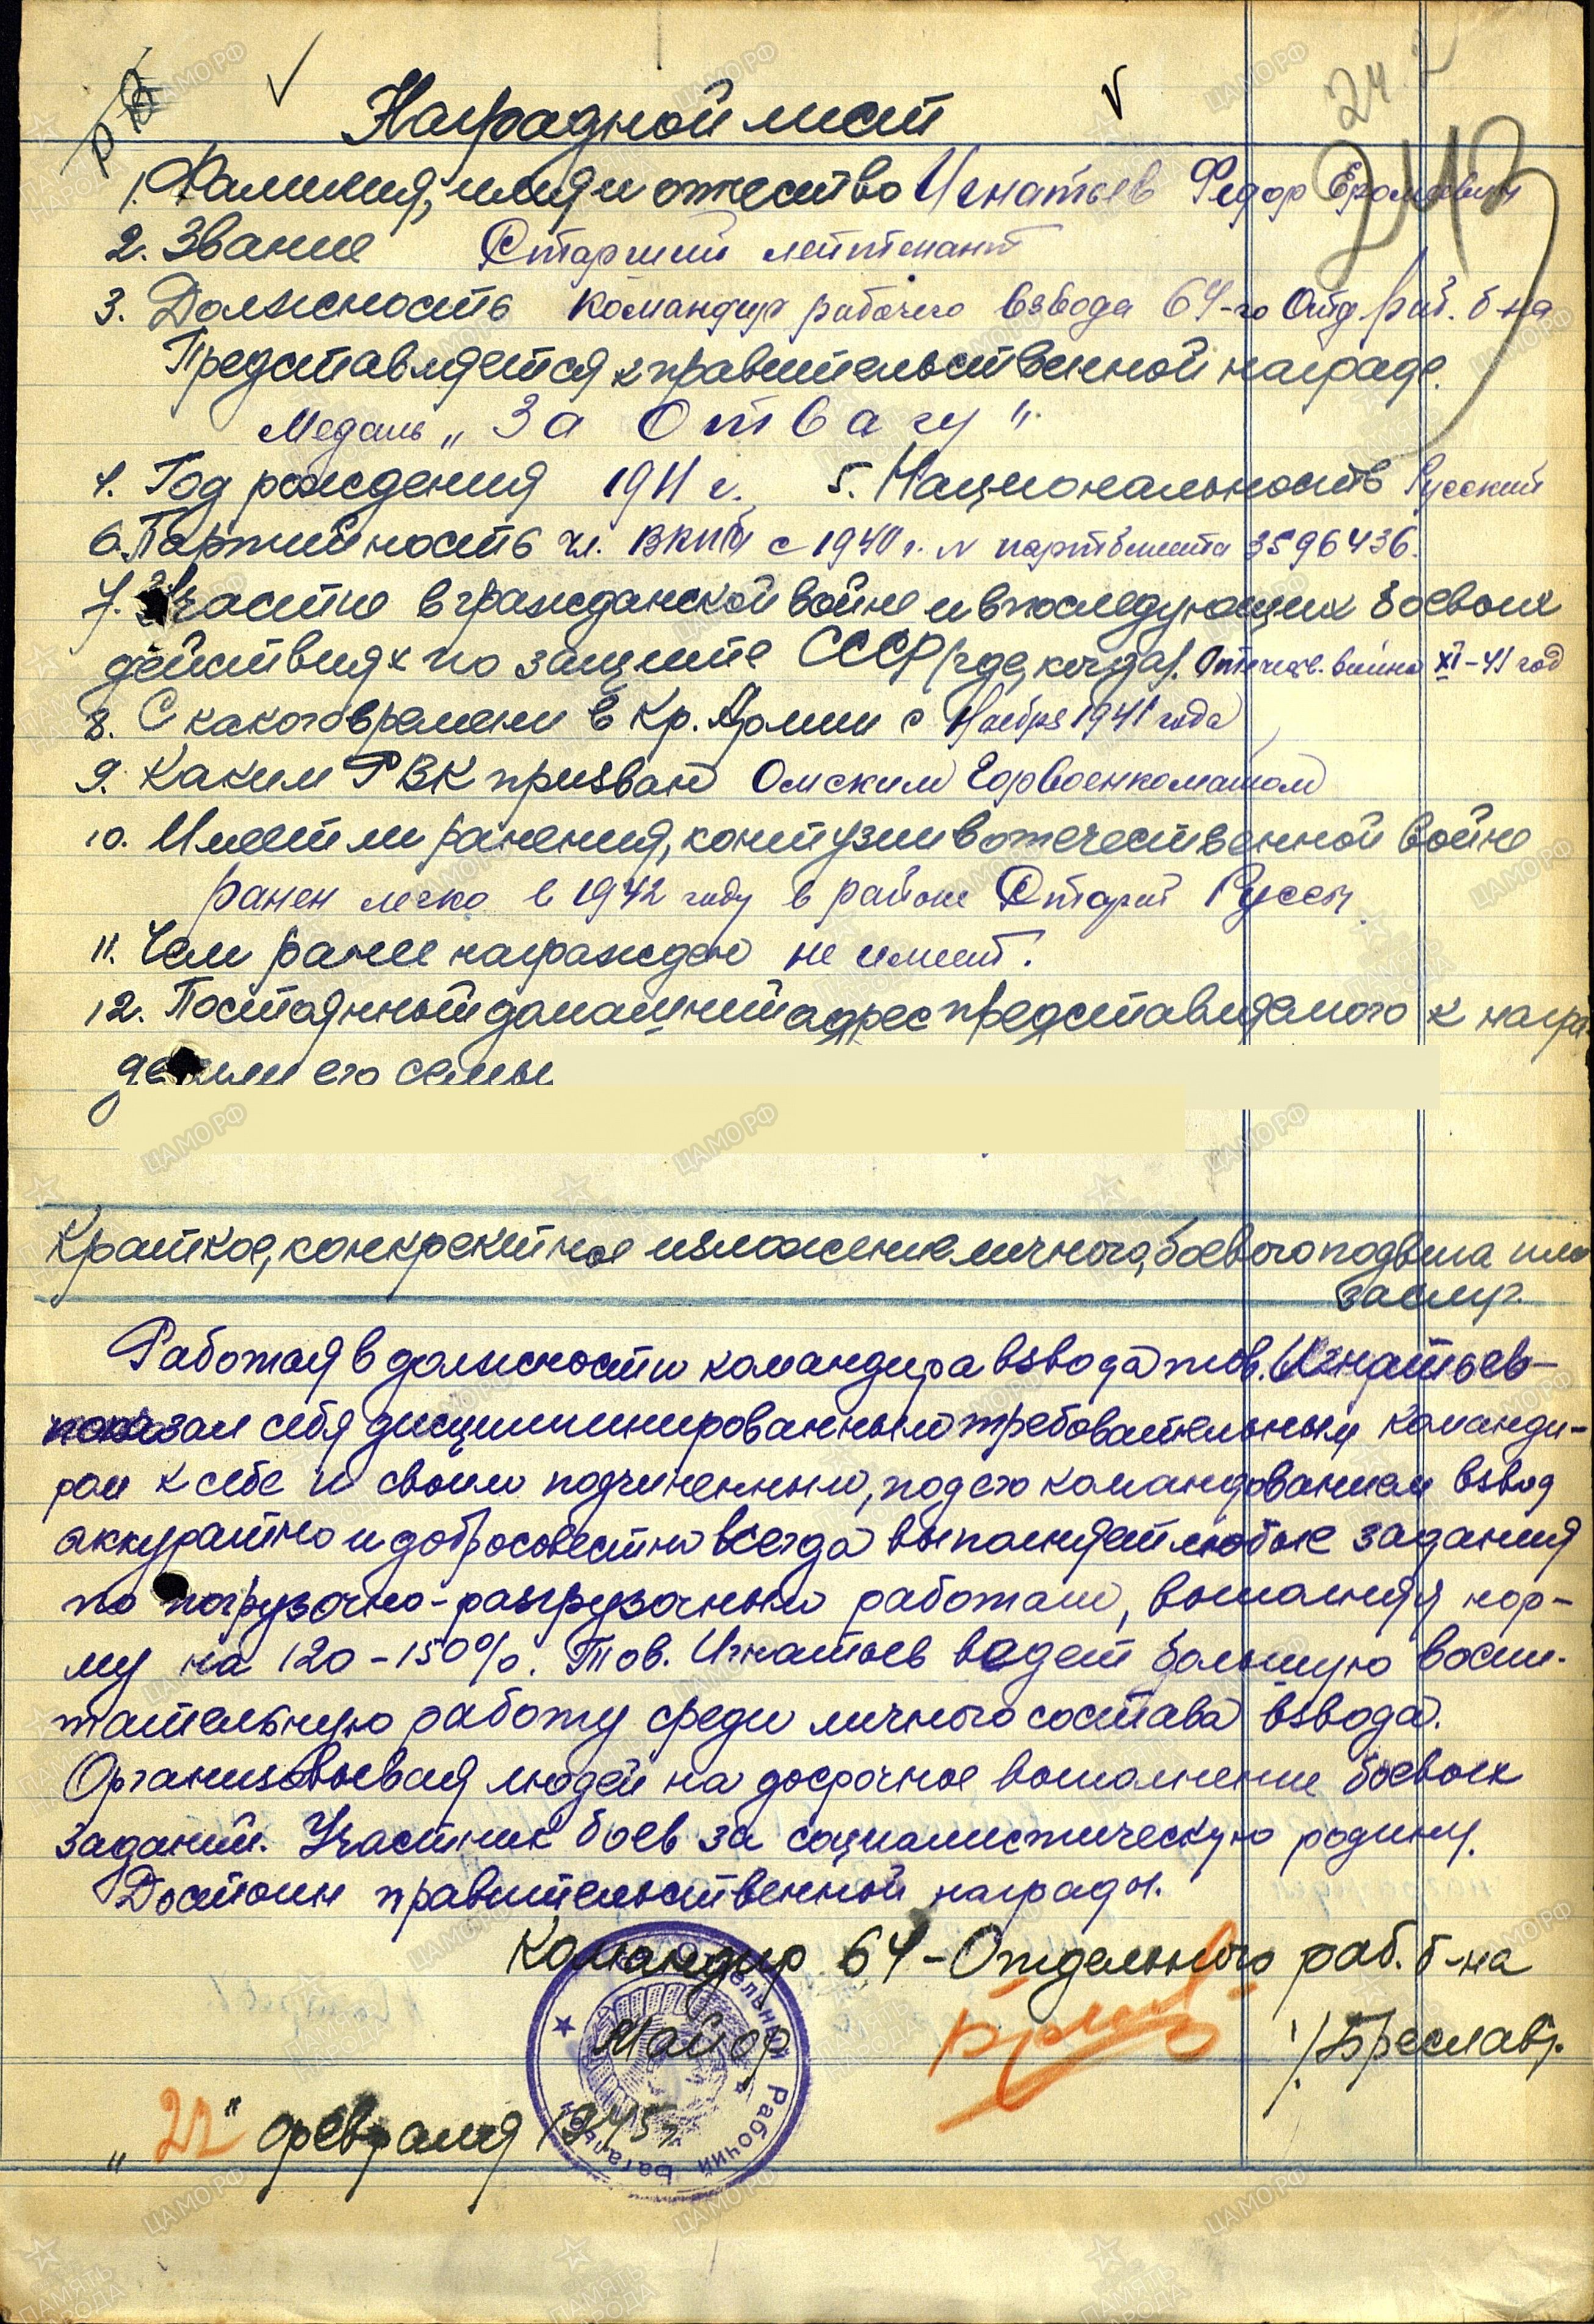 Наградной лист
1. Фамилия, имя и отчество Игнатьев Федор
2. Звание Старший лейтенант
3. Должность командир рабочего взвода 64-го Отд. раб. б-на
Представляется к правительственной награде.
Медаль „За Отвагу".
4. Год рождения 1911 г. 5. Национальность Русский
6. Партийность чл. ВКП(б) с 1940 г. № партбилета 3596436.
7. Участие в гражданской войне и в последующих боевых
действиях по защите СССР (где, когда). Отечеств. война XI-41 год
8. С какого времени в Кр. Армии с Ноября 1941 года
9. Каким РВК призван Омским Горвоенкоматом
10. Имеет ли ранения, контузии в отечественной войне
ранен легко в 1942 году в районе Старой Руссы
11. Чем ранее награжден не имеет.
12. Постоянный домашний адрес представляемого к награ-
де или его семьи
Краткое, конкретное изложение личного, боевого подвига или
заслуг.
Работая в должности командира взвода тов. Игнатьев-
показал себя дисциплинированным требовательным команди-
ром к себе и своим подчиненным, под его командованием взвод
аккуратно и добросовестно всегда выполняет любые задания
по погрузочно-разгрузочным работам, выполняя нор-
му на 120-150%. Тов. Игнатьев ведет большую воспи-
тательную работу среди личного состава взвода.
Организовывая людей на досрочное выполнение боевых
заданий. Участник боев за социалистическую родину.
Достоин правительственной награды.
Командир 64-Отдельного раб. б-на
майор /Бреслав/.
„22" февраля 1945 г.
Рабочий Батальон
24
243
ЦАМО РФ
ПАМЯТЬ НАРОДА